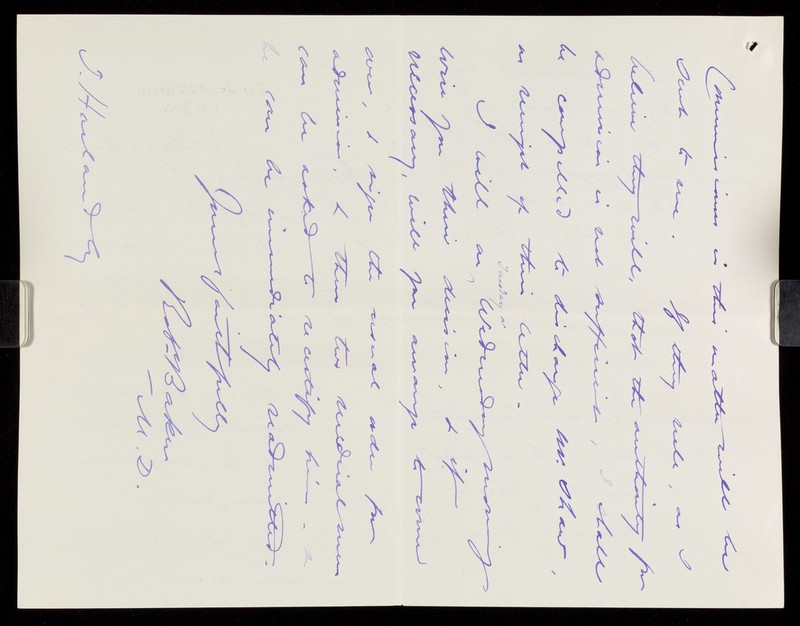 Commissioners in this matter will be
sent to me. If they rule, as I
believe they will, that the authority for
admission is not sufficient, I shall
be compelled to discharge Mr. Shaw,
on receipt of their letter.
I will on Tuesday or Wednesday morning
wire you their decision, & if
necessary, will you arrange to come
over, & sign the usual order for
admission, & then two medical men
can be asked to certify him - &
he can be immediately readmitted.
Yours faithfully
Robt Baker
- M.D.
J. Harland Esq